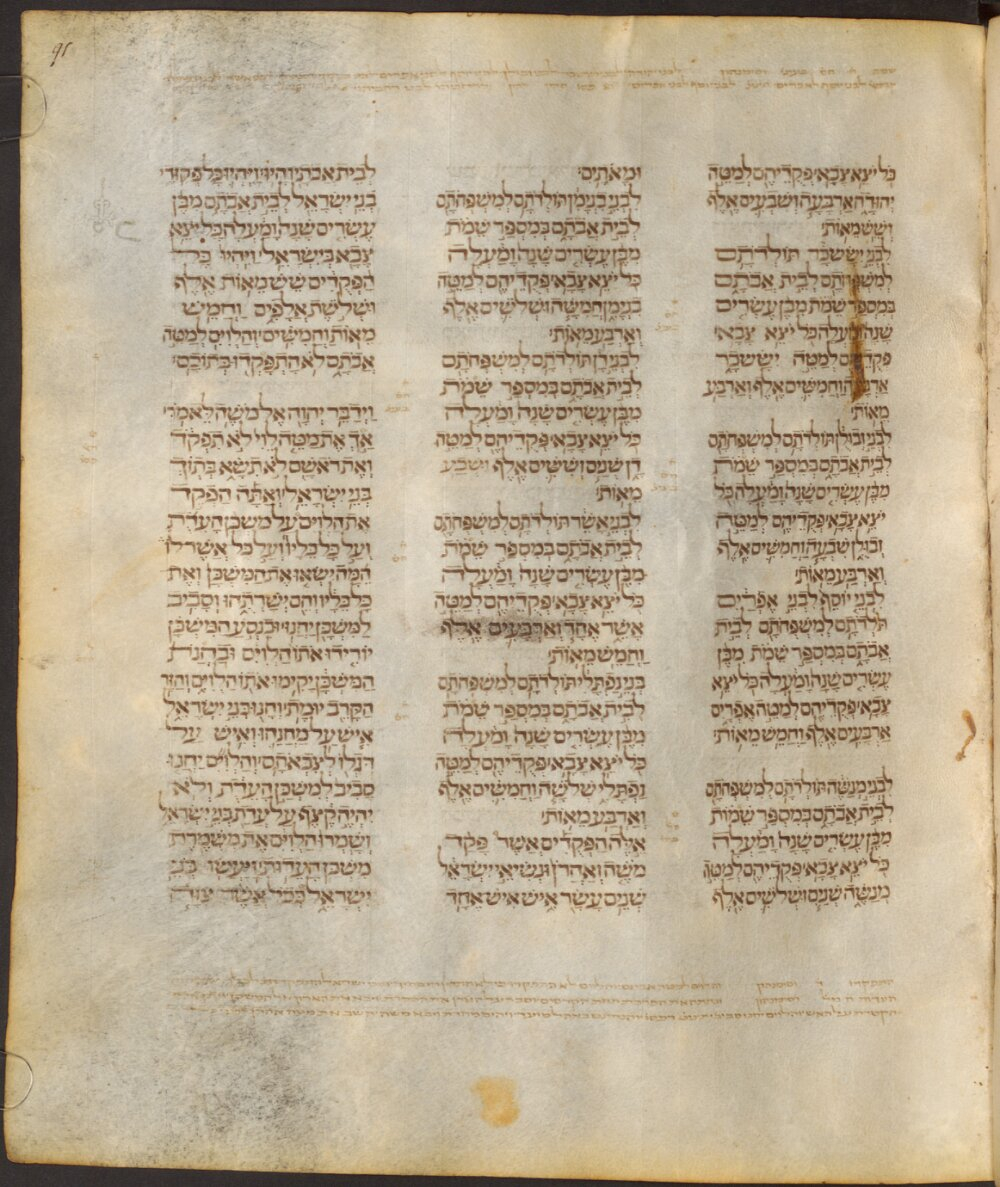 כל יצא צבא׃ פקדיהם למטה
יהודה ארבעה ושבעים אלף
ושש מאות׃
לבני יששכר תולדתם
למשפחתם לבית אבתם
במספר שמת מבן עשרים
שנה ומעלה כל יצא צבא׃
פקדיהם למטה יששכר
ארבעה וחמשים אלף וארבע
מאות׃
לבני זבולן תולדתם למשפחתם
לבית אבתם במספר שמת
מבן עשרים שנה ומעלה כל
יצא צבא׃ פקדיהם למטה
זבולן שבעה וחמשים אלף
וארבע מאות׃
לבני יוסף לבני אפרים
תולדתם למשפחתם לבית
אבתם במספר שמת מבן
עשרים שנה ומעלה כל יצא
צבא׃ פקדיהם למטה אפרים
ארבעים אלף וחמש מאות׃
לבני מנשה תולדתם למשפחתם
לבית אבתם במספר שמות
מבן עשרים שנה ומעלה
כל יצא צבא׃ פקדיהם למטה
מנשה שנים ושלשים אלף
ומאתים׃
לבני בנימן תולדתם למשפחתם
לבית אבתם במספר שמת
מבן עשרים שנה ומעלה
כל יצא צבא׃ פקדיהם למטה
בנימן חמשה ושלשים אלף
וארבע מאות׃
לבני דן תולדתם למשפחתם
לבית אבתם במספר שמת
מבן עשרים שנה ומעלה
כל יצא צבא׃ פקדיהם למטה
דן שנים וששים אלף ושבע
מאות׃
לבני אשר תולדתם למשפחתם
לבית אבתם במספר שמת
מבן עשרים שנה ומעלה
כל יצא צבא׃ פקדיהם למטה
אשר אחד וארבעים אלף
וחמש מאות׃
בני נפתלי תולדתם למשפחתם
לבית אבתם במספר שמת
מבן עשרים שנה ומעלה
כל יצא צבא׃ פקדיהם למטה
נפתלי שלשה וחמשים אלף
וארבע מאות׃
אלה הפקדים אשר פקד
משה ואהרן ונשיאי ישראל
שנים עשר איש איש אחד
לבית אבתיו היו׃ ויהיו כל פקודי
בני ישראל לבית אבתם מבן
עשרים שנה ומעלה כל יצא
צבא בישראל׃ ויהיו כל
הפקדים שש מאות אלף
ושלשת אלפים וחמש
מאות וחמשים׃ והלוים למטה
אבתם לא התפקדו בתוכם׃
וידבר יהוה אל משה לאמר׃
אך את מטה לוי לא תפקד
ואת ראשם לא תשא בתוך
בני ישראל׃ ואתה הפקד
את הלוים על משכן העדת
ועל כל כליו ועל כל אשר לו
המה ישאו את המשכן ואת
כל כליו והם ישרתהו וסביב
למשכן יחנו׃ ובנסע המשכן
יורידו אתו הלוים ובחנת
המשכן יקימו אתו הלוים והזר
הקרב יומת׃ וחנו בני ישראל
איש על מחנהו ואיש על
דגלו לצבאתם׃ והלוים יחנו
סביב למשכן העדת ולא
יהיה קצף על עדת בני ישראל
ושמרו הלוים את משמרת
משכן העדות׃ ויעשו בני
ישראל ככל אשר צוה